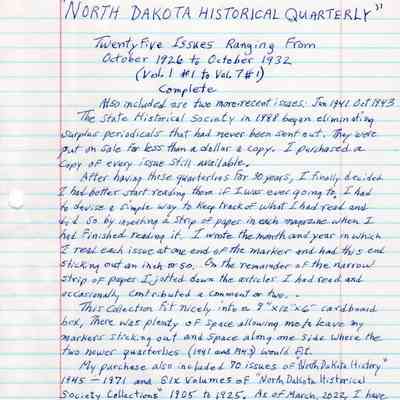 "NORTH DAKOTA HISTORICAL QUARTERLY"
Twenty Five Issues Ranging From
October 1926 to October 1932
(Vol. 1 #1 to Vol. 7 #1)
Complete
Also included are two more recent issues: Jan 1941 Oct 1943
The State Historical Society in 1988 began eliminating
surplus periodicals that had never been sent out. They were
put on sale for less than a dollar a copy. I purchased a
copy of every issue still available.
After having these quarterlies for 30 years, I finally decided
I had better start reading them if I was ever going to. I had
to devise a simple way to keep track of what I had read and
did so by inserting a strip of paper in each magazine when I
had finished reading it. I wrote the month and year in which
I read each issue at one end of the marker and had this end
sticking out an inch or so. On the remainder of the narrow
strip of paper I jotted down the articles I had read and
occasionally contributed a comment or two.
This collection fit nicely into a 9"x12"x6" cardboard
box, There was plenty of space allowing me to leave my
markers sticking out and space along one side where the
two newer quarterlies (1941 and 1943) would fit.
My purchase also included 90 issues of "North Dakota History"
1945 - 1971 and six volumes of "North Dakota Historical
Society Collections" 1905 to 1925. As of March, 2022, I have